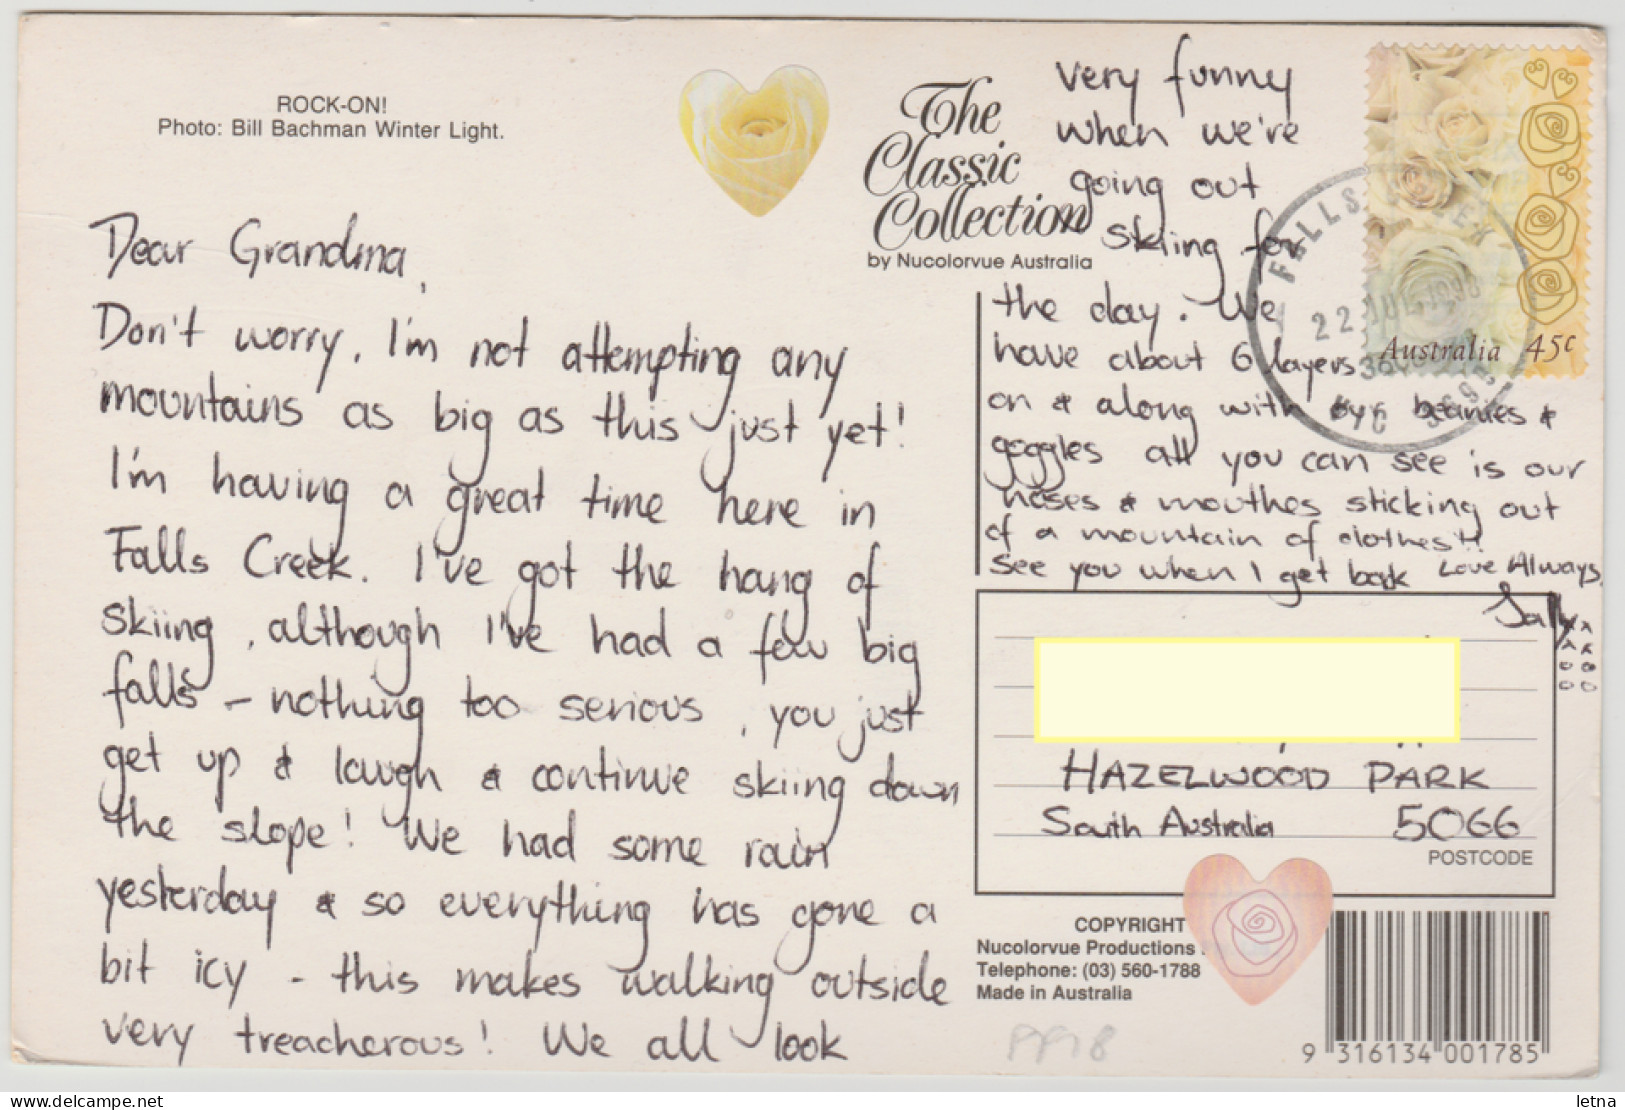 ROCK-ON!
Photo: Bill Bachman Winter Light.
The
Classic
Collection
by Nucolorvue Australia
Dear Grandma,
Don't worry, I'm not attempting any
mountains as big as this just yet!
I'm having a great time here in
Falls Creek. I've got the hang of
skiing, although I've had a few big
falls - nothing too serious, you just
get up & laugh & continue skiing down
the slope! We had some rain
yesterday & so everything has gone a
bit icy - this makes walking outside
very treacherous! We all look
very funny
when we're
going out
skiing for
the day. We
have about 6 layers
on & along with our beanies &
goggles all you can see is our
noses & mouthes sticking out
of a mountain of clothes!!
See you when I get back Love Always,
Sally
FALLS CREEK
22 JUL 1998
VIC 3699
Australia 45c
HAZELWOOD PARK
South Australia 5066
POSTCODE
COPYRIGHT
Nucolorvue Productions
Telephone: (03) 560-1788
Made in Australia
9 316134 001785
delcampe.net
letna